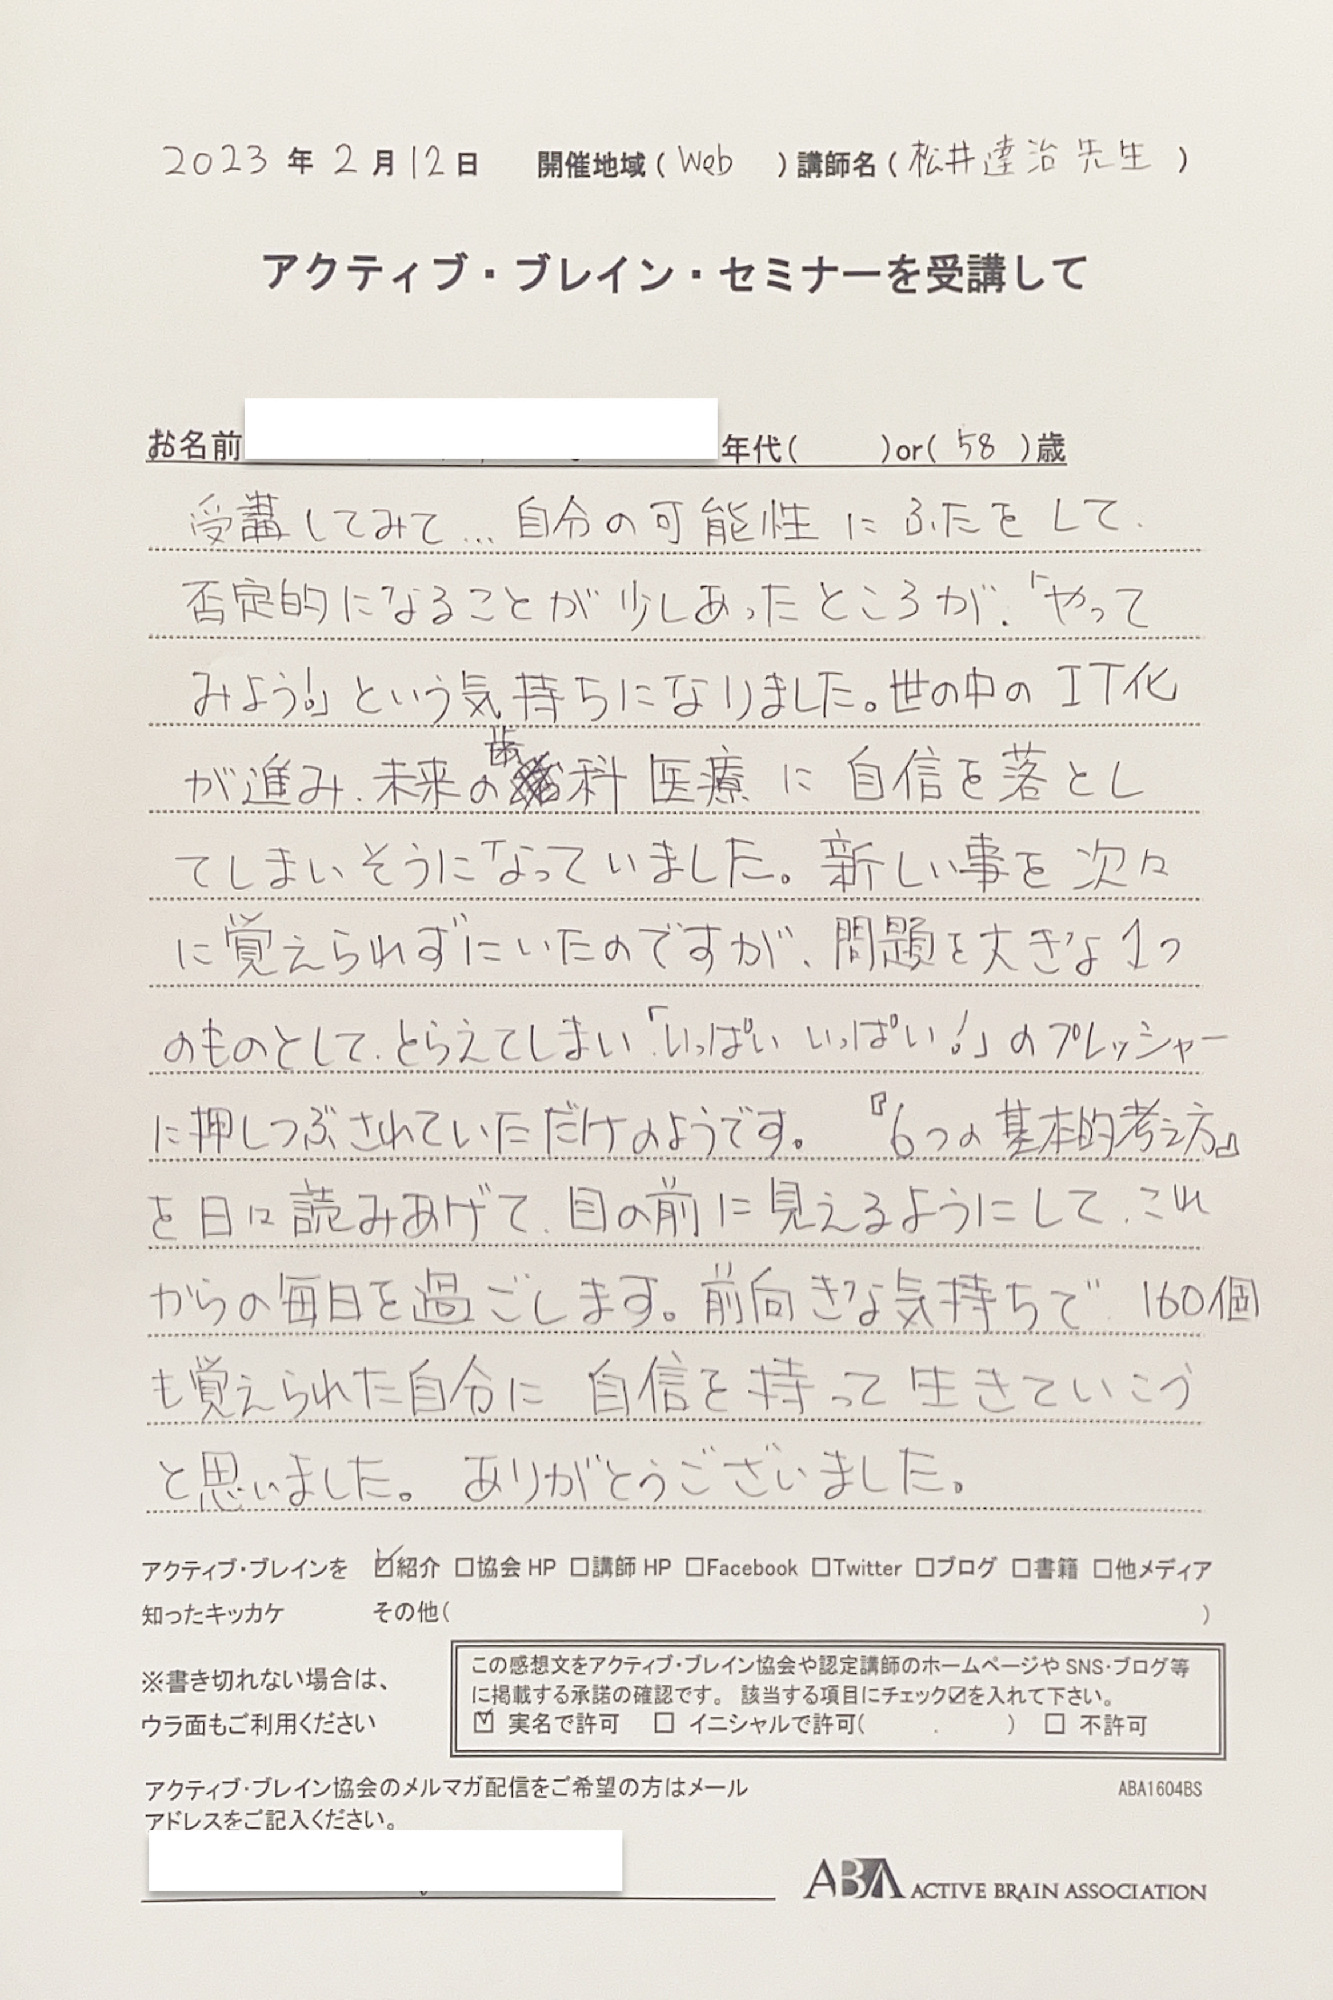 2023年2月12日 開催地域(Web )講師名(松井達治先生 )
アクティブ・ブレイン・セミナーを受講して
お名前 年代( )or(58)歳
受講してみて…自分の可能性にふたをして、
否定的になることが少しあったところが、「やって
みよう!」という気持ちになりました。世の中のIT化
が進み、未来の歯科医療に自信を落とし
てしまいそうになっていました。新しい事を次々
に覚えられずにいたのですが、問題を大きな1つ
のものとして、とらえてしまい「いっぱいいっぱい!」のプレッシャー
に押しつぶされていただけのようです。『6つの基本的考え方』
を日々読みあげて、目の前に見えるようにして、これ
からの毎日を過ごします。前向きな気持ちで、160個
も覚えられた自分に自信を持って生きていこう
と思いました。ありがとうございました。
アクティブ・ブレインを ☑紹介 □協会HP □講師HP □Facebook □Twitter □ブログ □書籍 □他メディア
知ったキッカケ その他( )
※書き切れない場合は、
ウラ面もご利用ください
この感想文をアクティブ・ブレイン協会や認定講師のホームページやSNS・ブログ等
に掲載する承諾の確認です。 該当する項目にチェック☑を入れて下さい。
☑ 実名で許可 □ イニシャルで許可( . ) □ 不許可
アクティブ・ブレイン協会のメルマガ配信をご希望の方はメール
アドレスをご記入ください。
ABA1604BS
ABA ACTIVE BRAIN ASSOCIATION